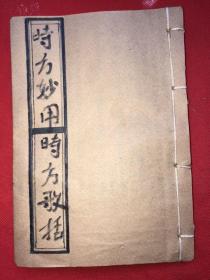 時方妙用時方歌括